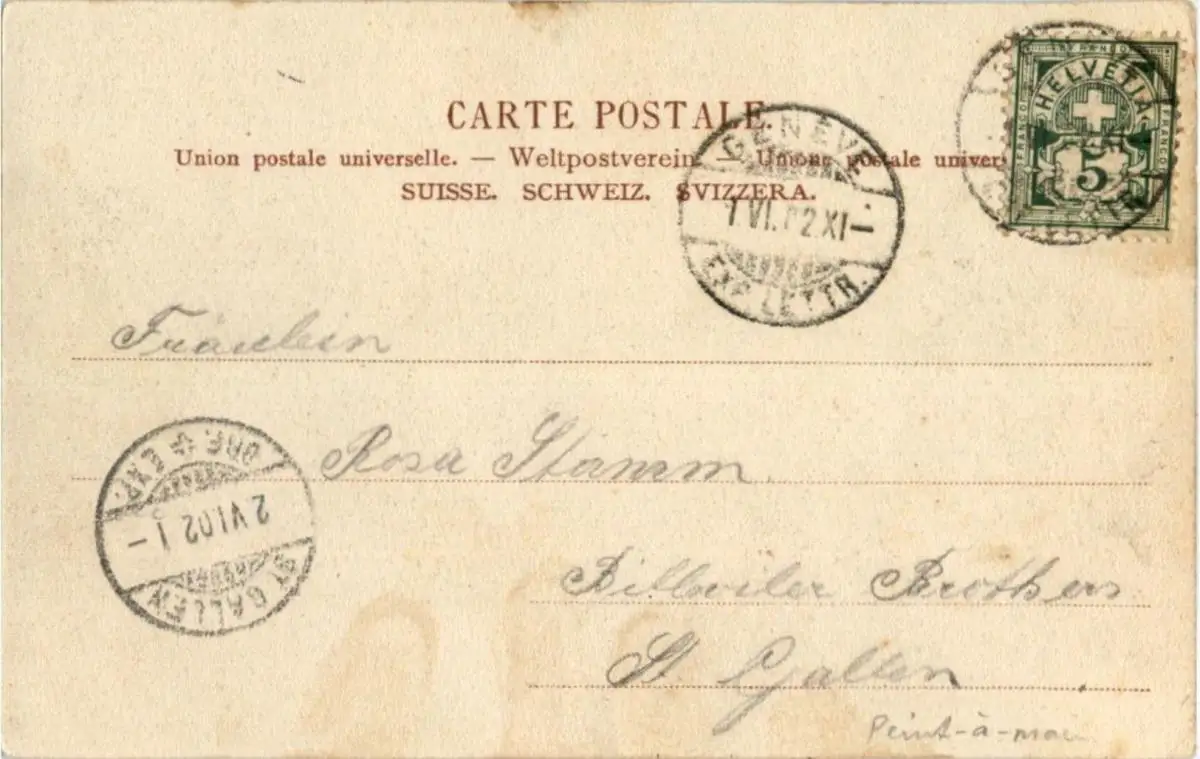 CARTE POSTALE.
Union postale universelle. — Weltpostverein. — Unione postale univers
SUISSE. SCHWEIZ. SVIZZERA.
FRANCO
HELVETIA
FRANCO
5
GENÈVE
1 VI. 02 XI —
EXP. LETTR.
Fräulein
Rosa Stamm
Billwiler Brothers
St. Gallen
ST. GALLEN
2 VI. 02 1 —
BRF. EXP.
Peint-à-main